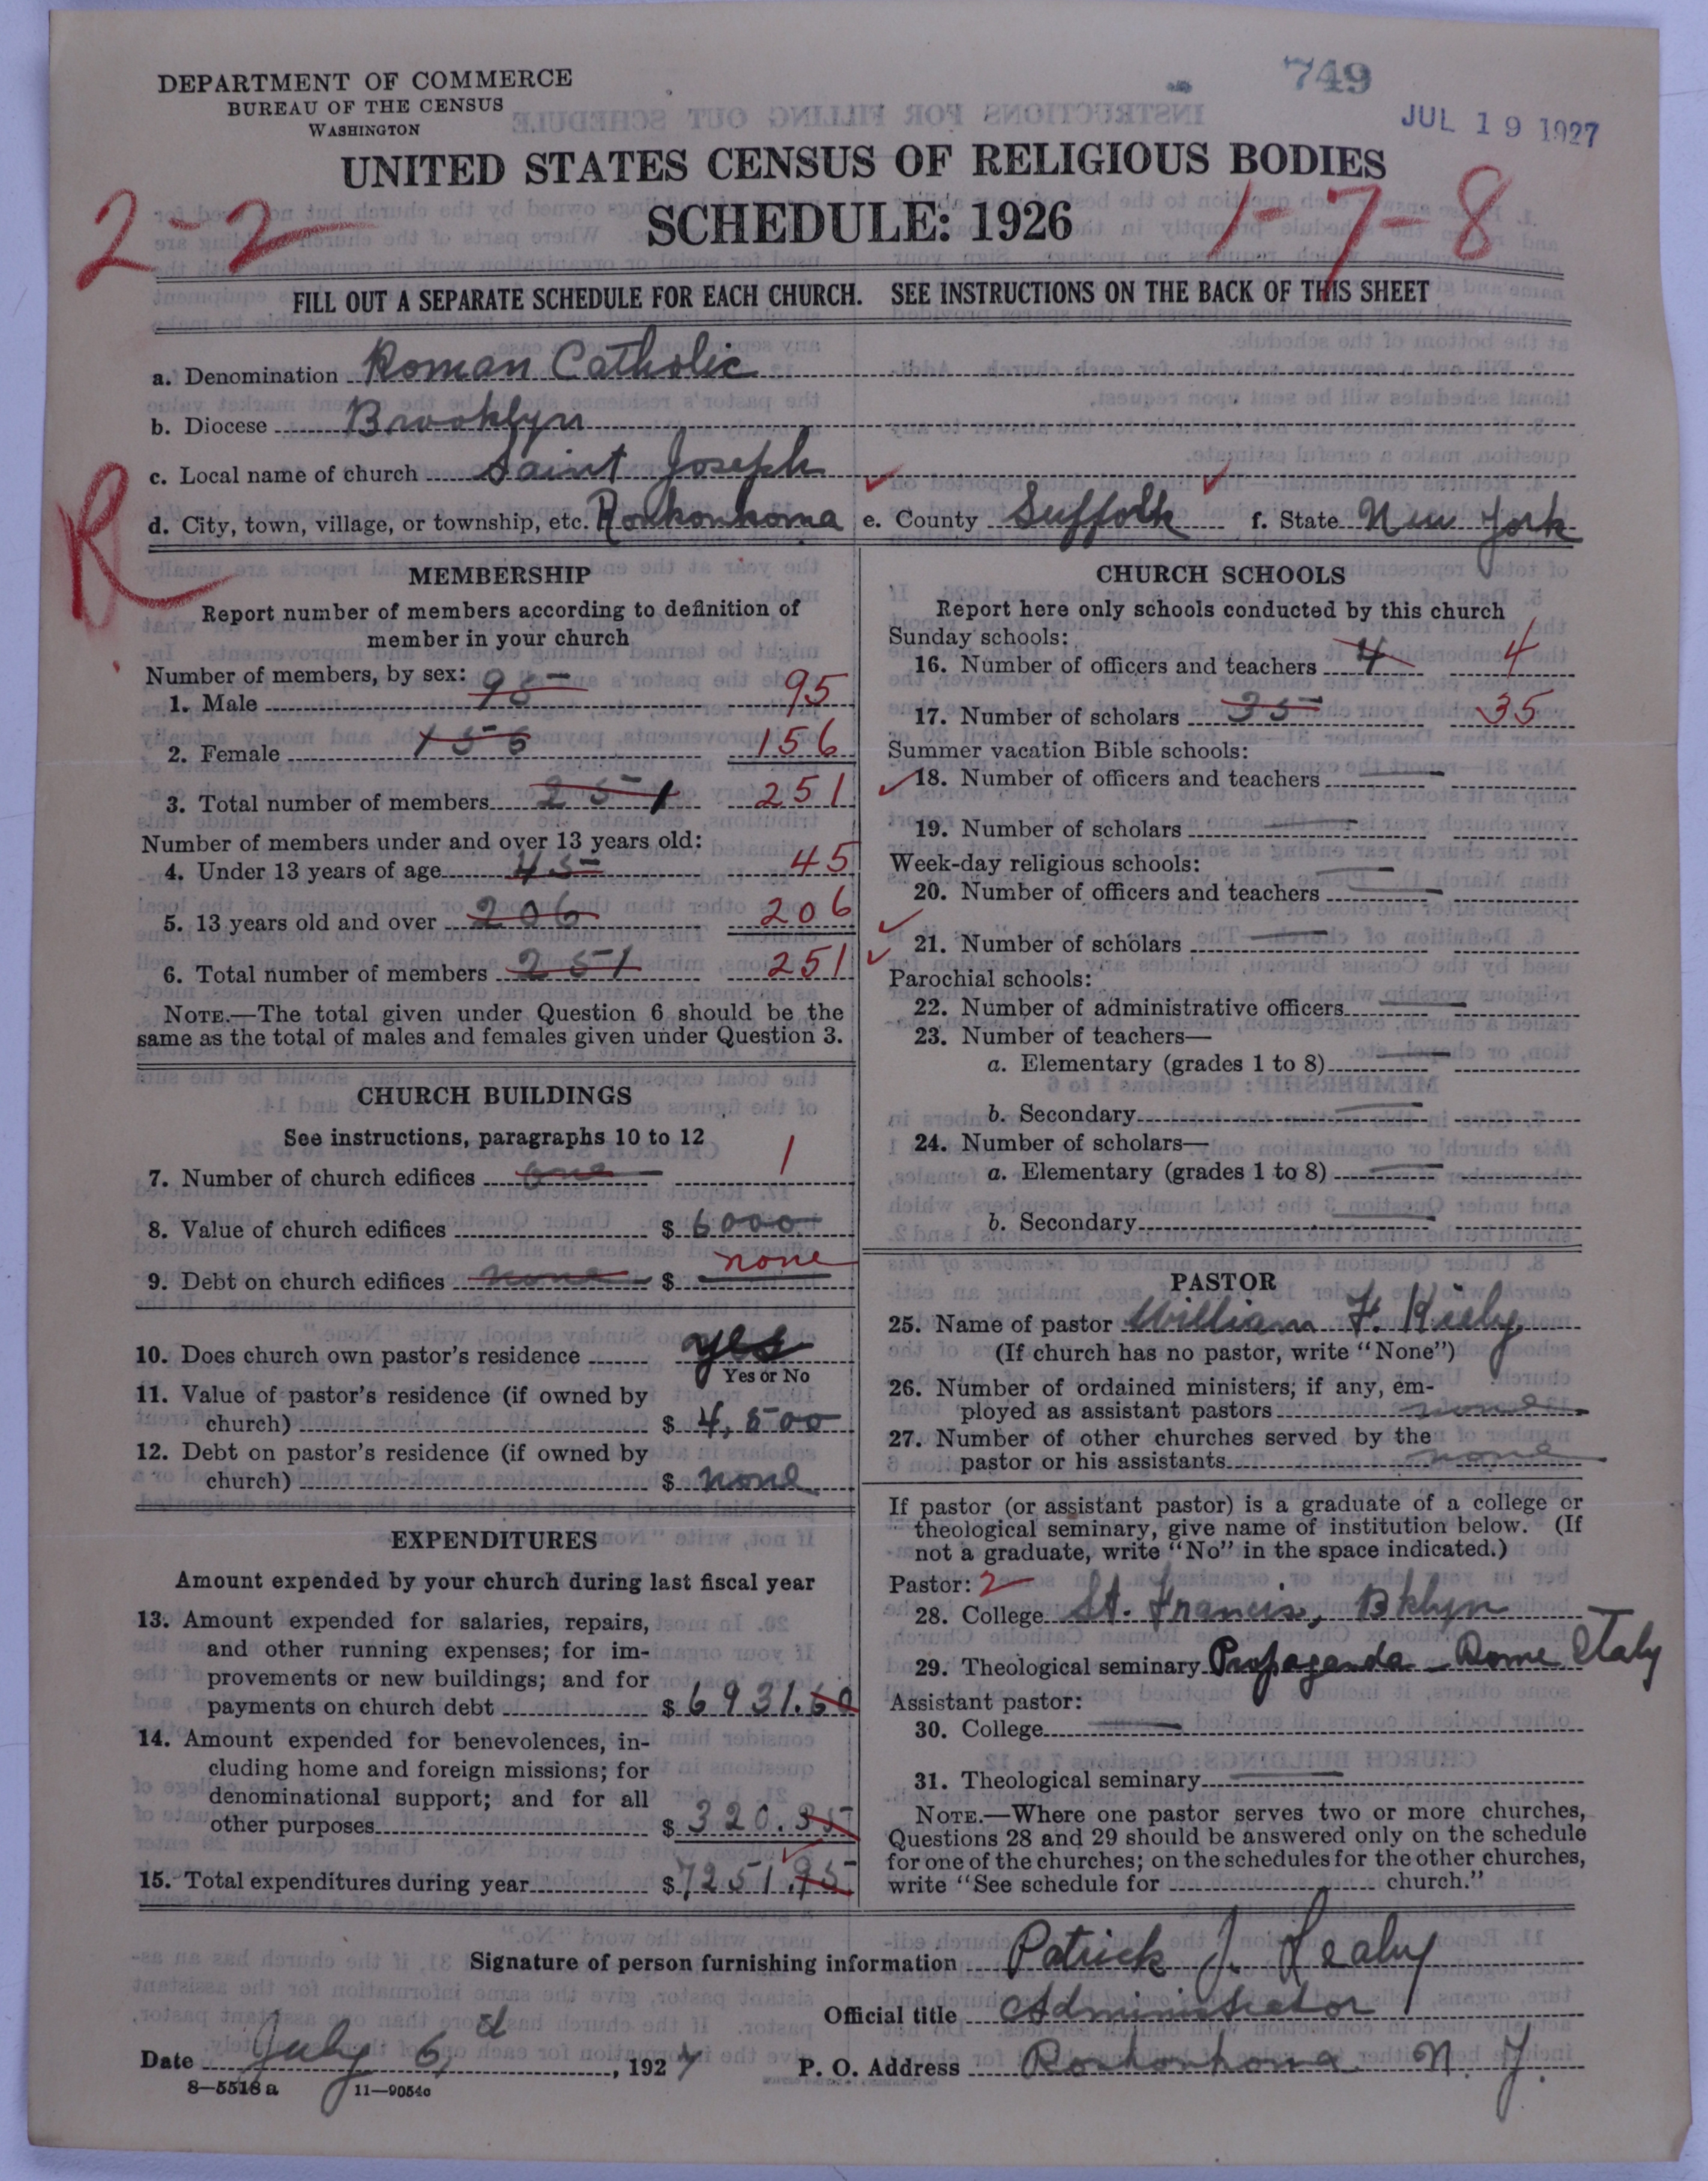 749
JUL 19 1927
DEPARTMENT OF COMMERCE
BUREAU OF THE CENSUS
WASHINGTON
UNITED STATES CENSUS OF RELIGIOUS BODIES
SCHEDULE: 1926
2-2
1-7-8
FILL OUT A SEPARATE SCHEDULE FOR EACH CHURCH. SEE INSTRUCTIONS ON THE BACK OF THIS SHEET
a. Denomination Roman Catholic
b. Diocese Brooklyn
c. Local name of church Saint Joseph
R
d. City, town, village, or township, etc. Ronkonkoma e. County Suffolk f. State New York
MEMBERSHIP
Report number of members according to definition of
member in your church
Number of members, by sex:
1. Male 95 95
2. Female 156 156
3. Total number of members 251 251
Number of members under and over 13 years old:
4. Under 13 years of age 45 45
5. 13 years old and over 206 206
6. Total number of members 251 251
NOTE.—The total given under Question 6 should be the
same as the total of males and females given under Question 3.
CHURCH BUILDINGS
See instructions, paragraphs 10 to 12
7. Number of church edifices one 1
8. Value of church edifices $ 6000
9. Debt on church edifices none $ none
10. Does church own pastor's residence yes
Yes or No
11. Value of pastor's residence (if owned by
church) $ 4,500
12. Debt on pastor's residence (if owned by
church) $ none
EXPENDITURES
Amount expended by your church during last fiscal year
13. Amount expended for salaries, repairs,
and other running expenses; for im-
provements or new buildings; and for
payments on church debt $ 6931.60
14. Amount expended for benevolences, in-
cluding home and foreign missions; for
denominational support; and for all
other purposes $ 320.35
15. Total expenditures during year $ 7251.95
CHURCH SCHOOLS
Report here only schools conducted by this church
Sunday schools:
16. Number of officers and teachers 4 4
17. Number of scholars 35 35
Summer vacation Bible schools:
18. Number of officers and teachers —
19. Number of scholars —
Week-day religious schools: —
20. Number of officers and teachers —
21. Number of scholars —
Parochial schools:
22. Number of administrative officers —
23. Number of teachers—
a. Elementary (grades 1 to 8) —
b. Secondary —
24. Number of scholars—
a. Elementary (grades 1 to 8) —
b. Secondary —
PASTOR
25. Name of pastor William F. Kiely
(If church has no pastor, write "None")
26. Number of ordained ministers, if any, em-
ployed as assistant pastors none
27. Number of other churches served by the
pastor or his assistants none
If pastor (or assistant pastor) is a graduate of a college or
theological seminary, give name of institution below. (If
not a graduate, write "No" in the space indicated.)
Pastor: 2
28. College St. Francis, Bklyn
29. Theological seminary Propaganda - Rome Italy
Assistant pastor:
30. College —
31. Theological seminary —
NOTE.—Where one pastor serves two or more churches,
Questions 28 and 29 should be answered only on the schedule
for one of the churches; on the schedules for the other churches,
write "See schedule for church."
Signature of person furnishing information Patrick J. Healy
Official title Administrator
Date July 6, 1927 P. O. Address Ronkonkoma N. Y.
8—5518 a 11—9054c